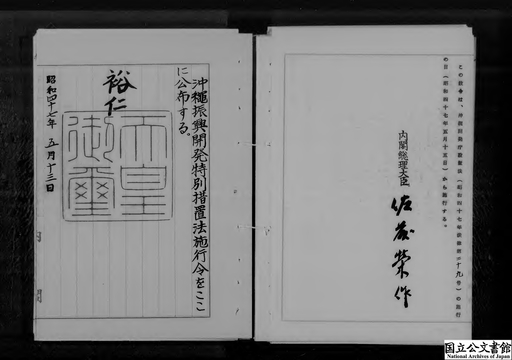 沖縄振興開発特別措置法施行令をここ
に公布する。
裕仁
天皇
御璽
昭和四十七年 五月十三日
この政令は、沖縄開発庁設置法（昭和四十七年法律第二十九号）の施行
の日（昭和四十七年五月十五日）から施行する。
内閣総理大臣 佐藤榮作
国立公文書館
National Archives of Japan